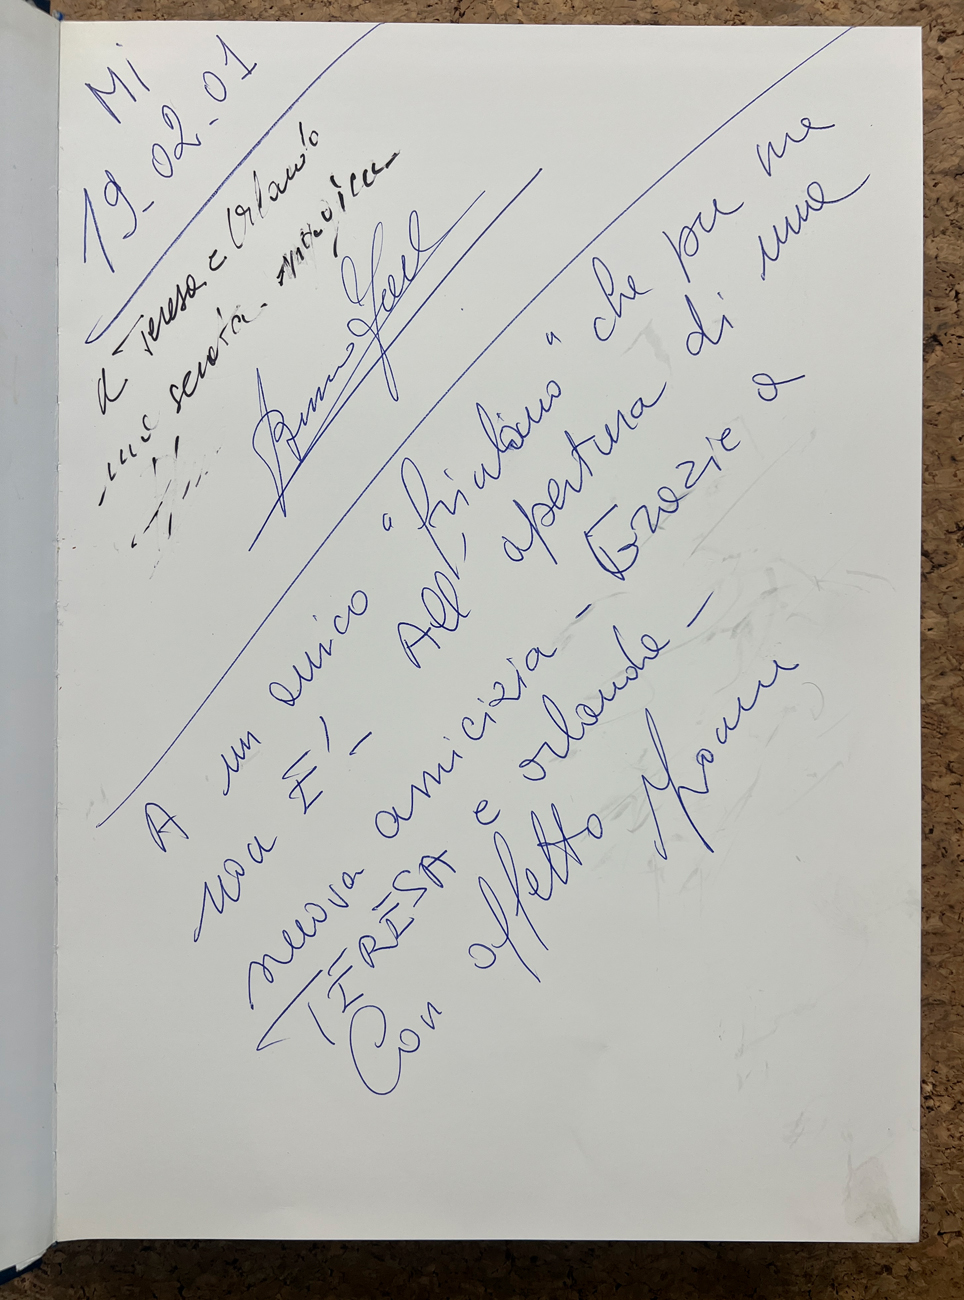 Mi
19-02-01
A Teresa e Orlando
una serata magica
A un amico "friulano" che per me
non È - All'apertura di una
nuova amicizia - Grazie a
TERESA e Orlando -
Con affetto